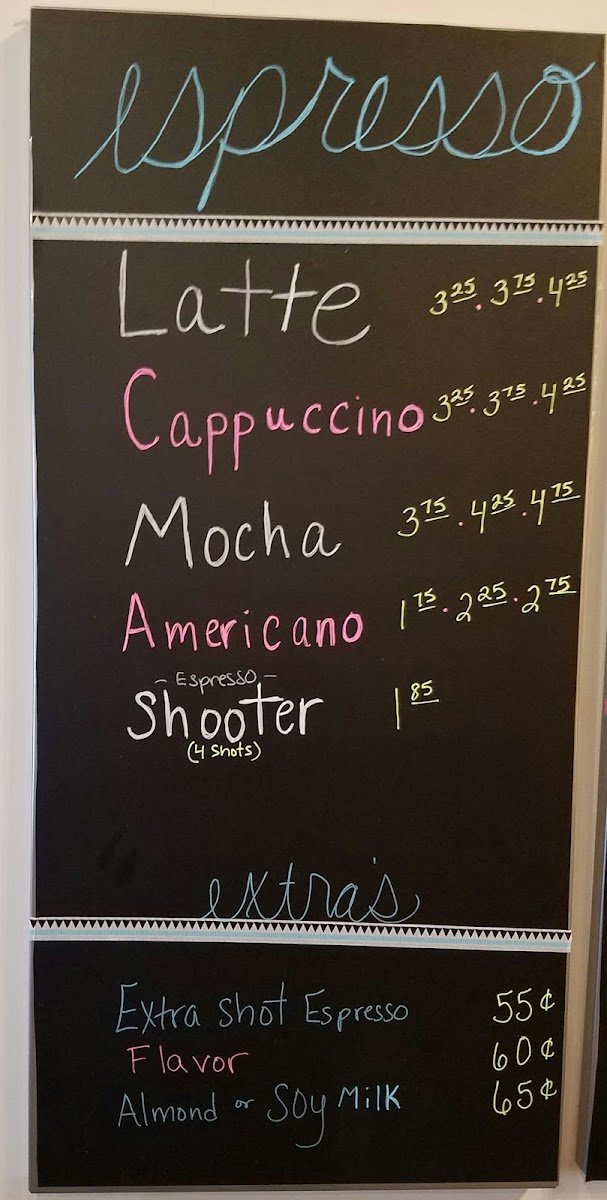 espresso
Latte 3 25 . 3 75 . 4 25
Cappuccino 3 25 . 3 75 . 4 25
Mocha 3 75 . 4 25 . 4 75
Americano 1 75 . 2 25 . 2 75
- Espresso -
Shooter 1 85
(4 Shots)
extra's
Extra Shot Espresso 55¢
Flavor 60¢
Almond or Soy Milk 65¢